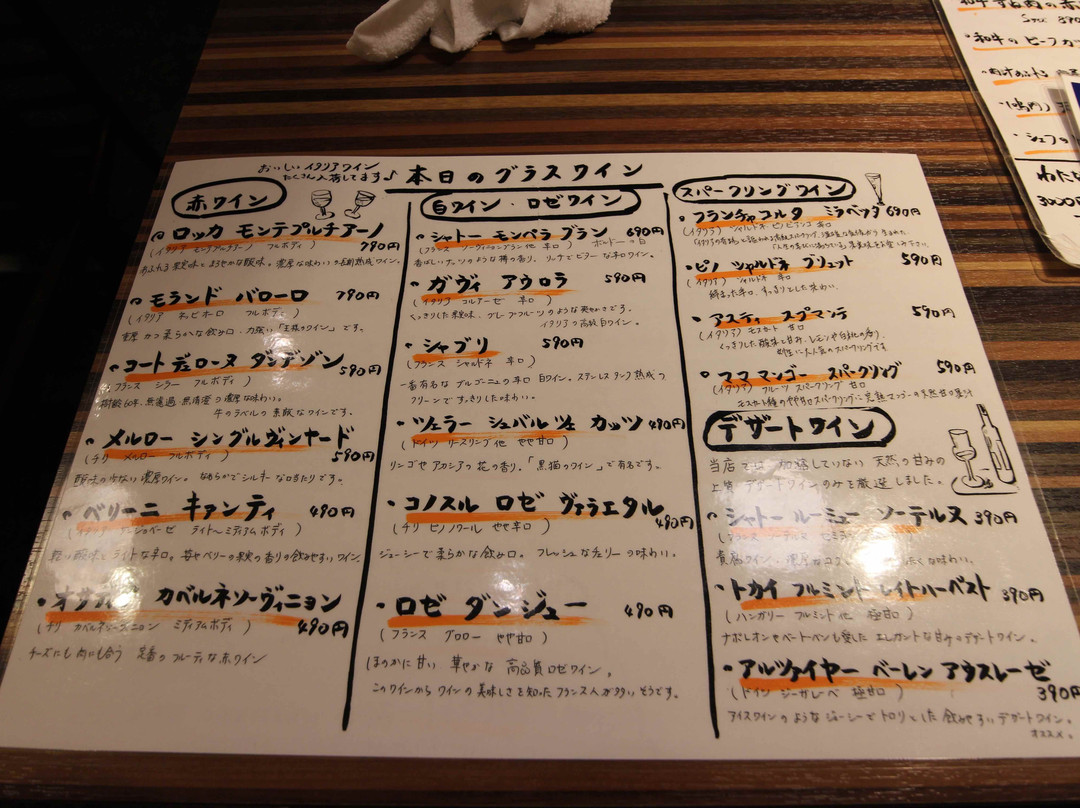 おいしいイタリアワイン
たくさん入荷してます♪
本日のグラスワイン
赤ワイン
ロッカ モンテプルチアーノ
(イタリア モンテプルチアーノ フルボディ)
790円
あふれる果実味とまろやかな酸味。濃厚な味わいの長期熟成ワイン。
・モランド バローロ 790円
(イタリア ネッビオーロ フルボディ)
重厚かつ柔らかな飲み口、力強い「王様のワイン」です。
・コート デュ ローヌ ダンデゾン 590円
(フランス シラー フルボディ)
樹齢60年、無濾過・無清澄の濃厚な味わい。
牛のラベルの素敵なワインです。
・メルロー シングルヴィンヤード
(チリ メルロー フルボディ) 590円
酸味の少ない濃厚ワイン。なめらかでシルキーな口当たりです。
・ベリーニ キャンティ 490円
(イタリア サンジョベーゼ ライト〜ミディアムボディ)
軽い酸味とライトな辛口。苺やベリーの果実の香りの飲みやすいワイン。
カベルネソーヴィニョン
(チリ カベルネソーヴィニョン ミディアムボディ) 490円
チーズにも肉にも合う 定番のフルーティな赤ワイン
白ワイン・ロゼワイン
・シャトー モンペラ ブラン 690円
(フランス ソーヴィニョンブラン他 辛口) ボルドーの白
香ばしいナッツのような樽の香り、リッチでビターな辛口ワイン。
・ガヴィ アウロラ 590円
(イタリア コルテーゼ 辛口)
くっきりした果実味、グレープフルーツのような爽やかさです。
イタリアの高級白ワイン。
・シャブリ 590円
(フランス シャルドネ 辛口)
一番有名なブルゴーニュの辛口白ワイン。ステンレスタンク熟成の
クリーンですっきりした味わい。
・ツェラー シュバルツェ カッツ 490円
(ドイツ リースリング他 やや甘口)
リンゴやアカシアの花の香り。「黒猫のワイン」で有名です。
・コノスル ロゼ ヴァラエタル
(チリ ピノノワール やや辛口) 490円
ジューシーで柔らかな飲み口。フレッシュなチェリーの味わい。
・ロゼ ダンジュー 490円
(フランス グロロー やや甘口)
ほのかに甘い 華やかな 高品質ロゼワイン。
このワインからワインの美味しさを知ったフランス人が多いそうです。
スパークリングワイン
・フランチャコルタ ミラベッラ 690円
(イタリア) シャルドネ・ピノビアンコ 辛口
・ピノ シャルドネ ブリュット 590円
(イタリア) シャルドネ 辛口
締まった辛口、すっきりとした味わい。
・アスティ スプマンテ 590円
(イタリア) モスカート 甘口
くっきりした酸味と甘み、レモンや白桃の香り
女性に大人気のスパークリングです
・ママ マンゴー スパークリング 590円
(イタリア) フルーツ スパークリング 甘口
モスカート種のやや甘口スパークリングに完熟マンゴーの天然甘口果汁
デザートワイン
当店では 加糖していない 天然の甘みの
上質デザートワインのみを厳選しました。
・シャトー ルーミュー ソーテルヌ 390円
・トカイ フルミント レイトハーベスト 390円
(ハンガリー フルミント他 極甘口)
ナポレオンやベートーベンも愛した エレガントな甘みのデザートワイン。
・アルツァイヤー ベーレン アウスレーゼ
(ドイツ ジーガレーベ 極甘口) 390円
アイスワインのようなジューシーでトロリとした飲みやすいデザートワイン。
オススメ。
和牛のビーフカ
3000円